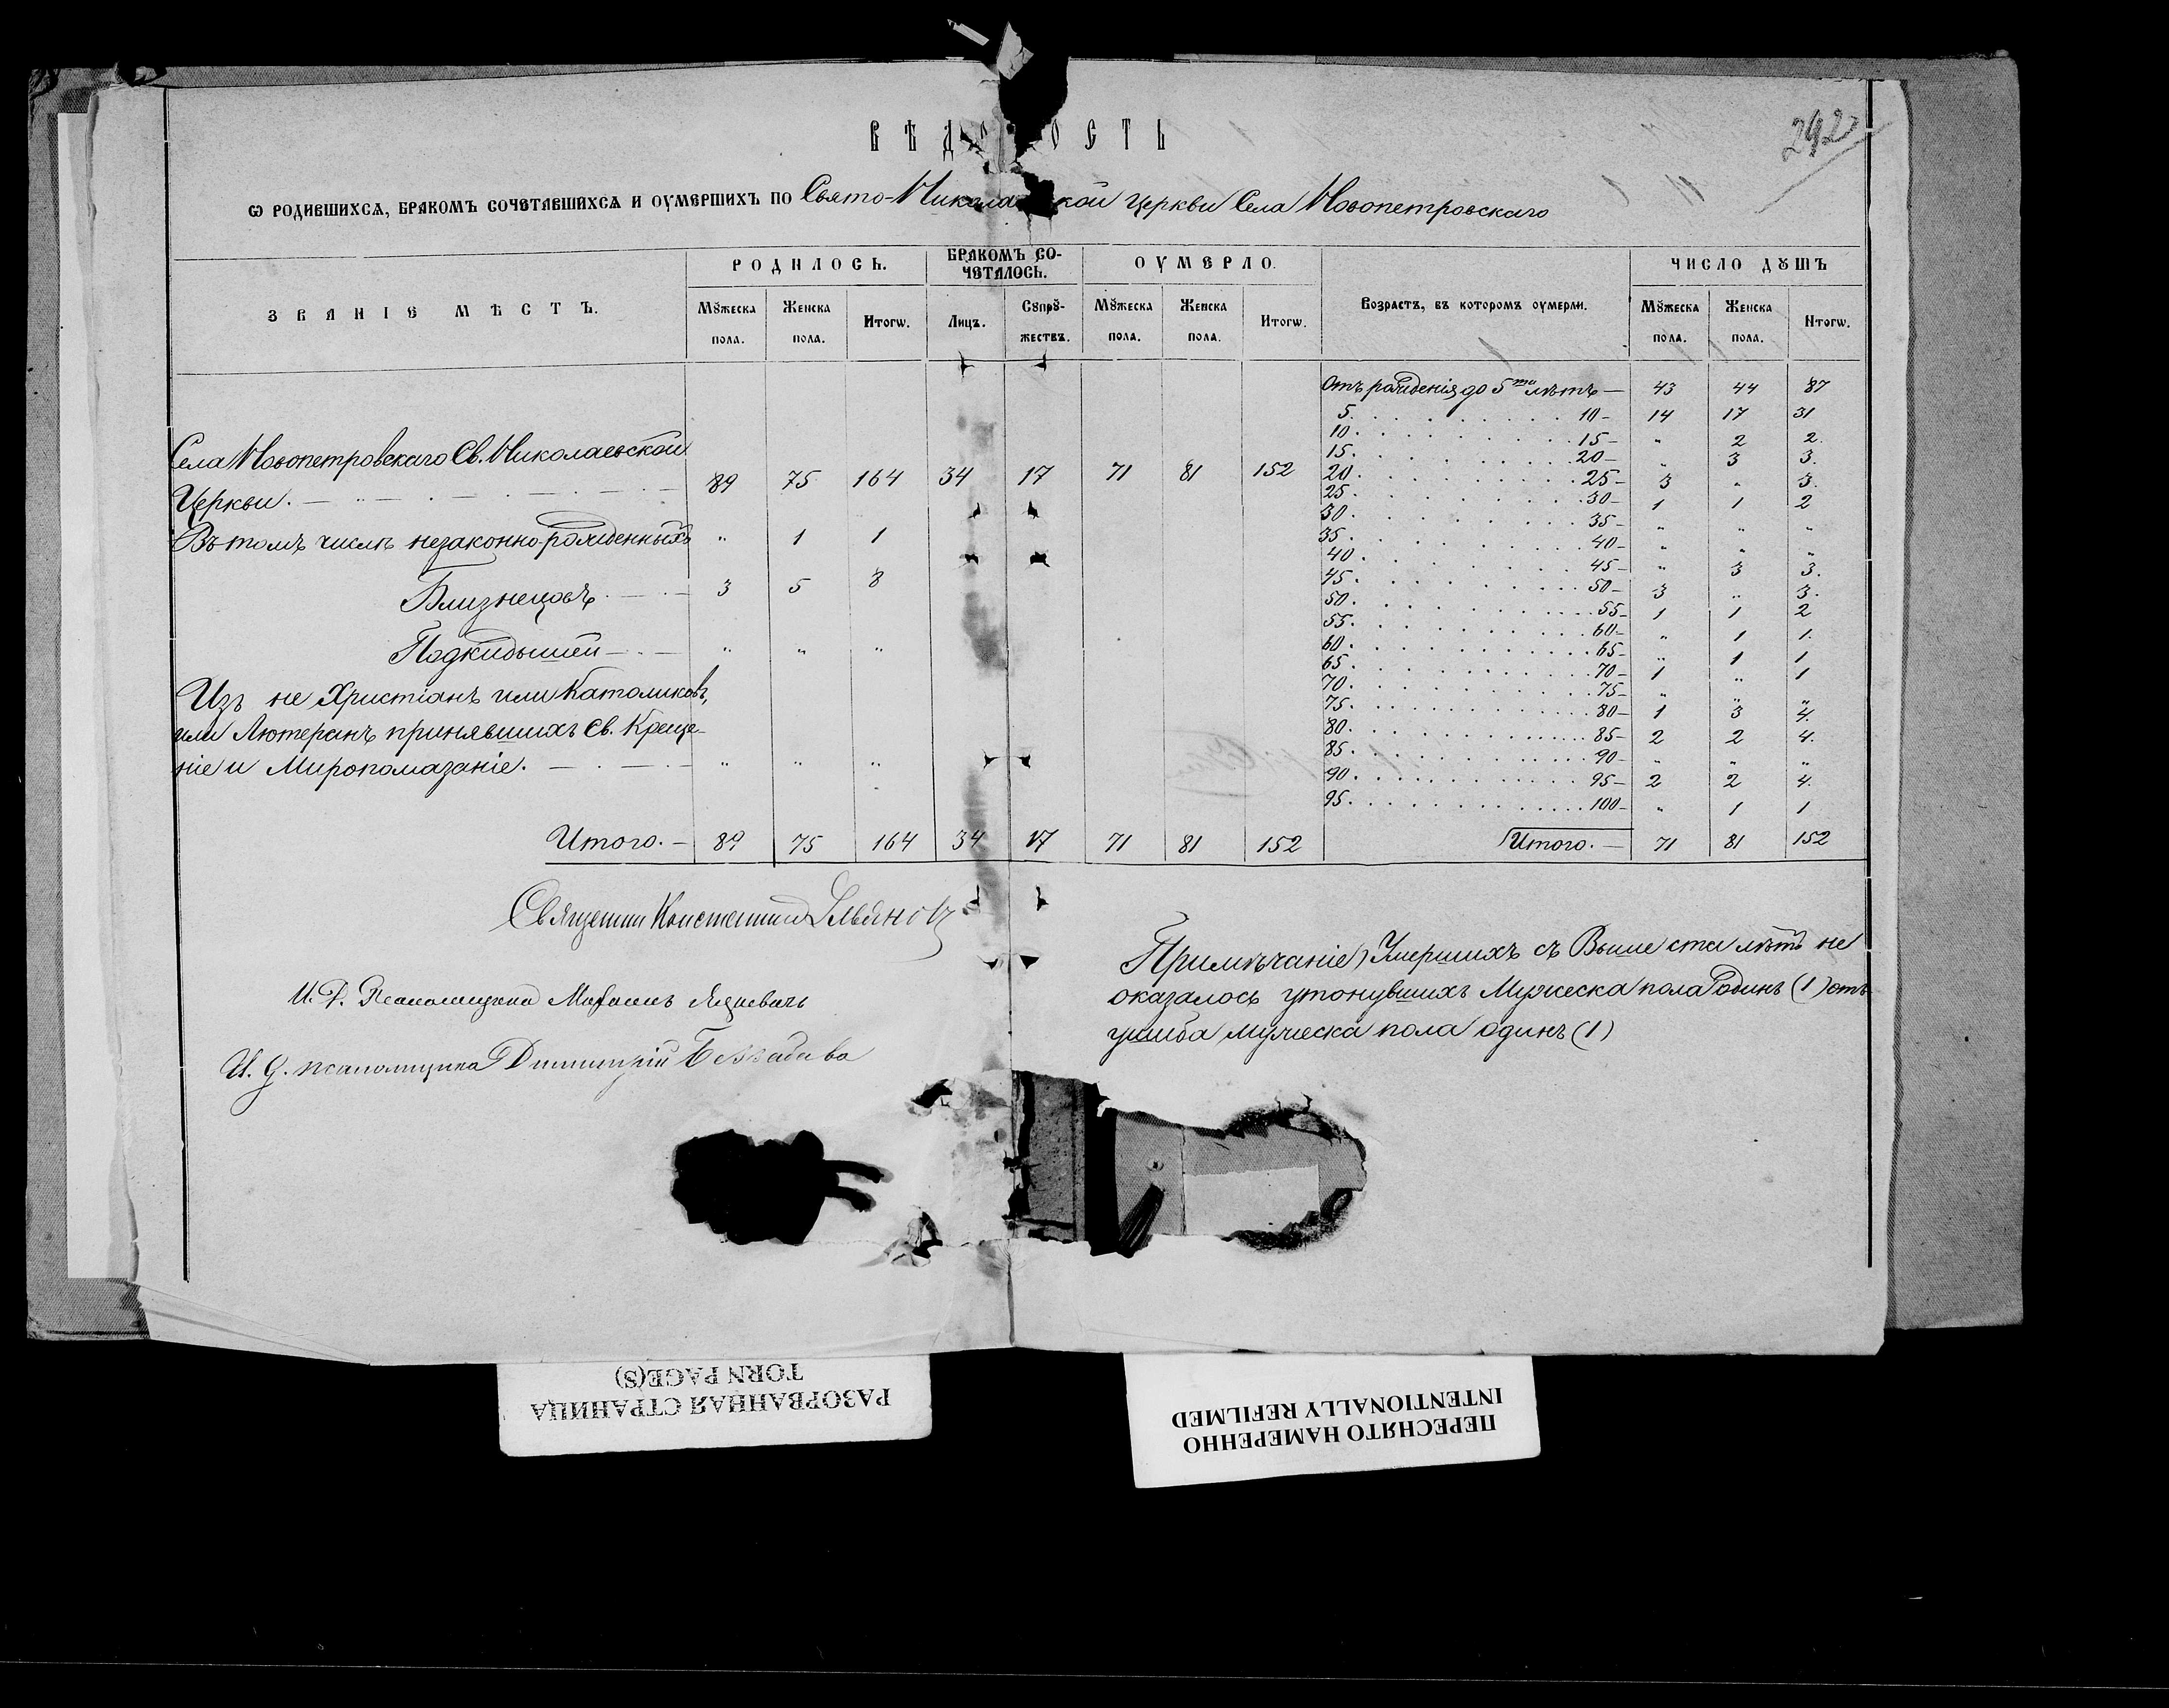 ВѢДОМОСТЬ
292
Ѡ РОДИВШИХСѦ, БРАКОМЪ СОЧЕТАВШИХСѦ И ОУМЕРШИХЪ ПО Свято-Николаевской церкви Села Новопетровскаго
ЗВАНІЕ МѢСТЪ. РОДИЛОСЬ. БРАКОМЪ СОЧЕТАЛОСЬ. ОУМЕРЛО. Возрастъ, въ которомъ оумерли. ЧИСЛО ДꙊШЪ
Мꙋжеска пола. Женска пола. Итогѡ. Лицъ. Сꙋпрꙋжествъ. Мꙋжеска пола. Женска пола. Итогѡ. Мꙋжеска пола. Женска пола. Итогѡ.
Села Новопетровскаго Св. Николаевской
Церкви. 89 75 164 34 17 71 81 152
Въ томъ числѣ незаконно-рожденныхъ " 1 1
Близнецовъ 3 5 8
Подкидышей " " "
Изъ не Христіанъ или Католиковъ,
или Лютеранъ принявшихъ Св. Креще-
ніе и Миропомазаніе. " " "
Итого. 89 75 164 34 17 71 81 152
Отъ рожденія до 5ти лѣтъ 43 44 87
5. 10 14 17 31
10. 15 " 2 2.
15. 20 " 3 3.
20. 25 3 " 3.
25. 30 1 1 2
30. 35 " " "
35. 40 " " "
40. 45 " 3 3.
45. 50 3 " 3.
50. 55 1 1 2
55. 60 " 1 1.
60. 65 " 1 1
65. 70 1 " 1
70. 75 " " "
75. 80 1 3 4.
80. 85 2 2 4.
85. 90 " " "
90. 95 2 2 4.
95. 100 " 1 1
Итого. 71 81 152
Священник Константин
И. Д. Псаломщика
И. д. псаломщика Димитрій
Примѣчаніе) Умершихъ съ Выше ста лѣтъ не
оказалось утонувшихъ Мужеска пола одинъ (1) отъ
ушиба мужеска пола одинъ (1)
РАЗОРВАННАЯ СТРАНИЦА
TORN PAGE(S)
ПЕРЕСНЯТО НАМЕРЕННО
INTENTIONALLY REFILMED